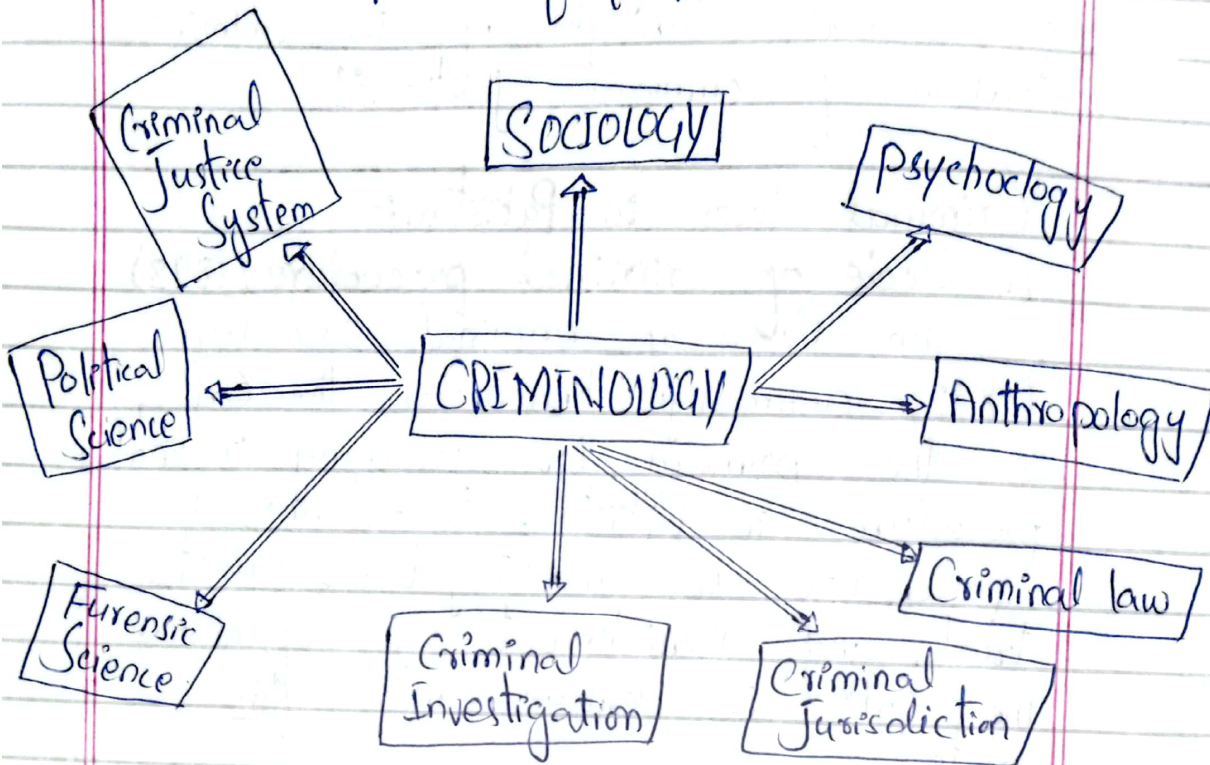 Criminal
Justice
System
SOCIOLOGY
Psychoclogy
Political
Science
CRIMINOLOGY
Anthropology
Furensic
Science
Criminal
Investigation
Criminal
Jurisdiction
Criminal law